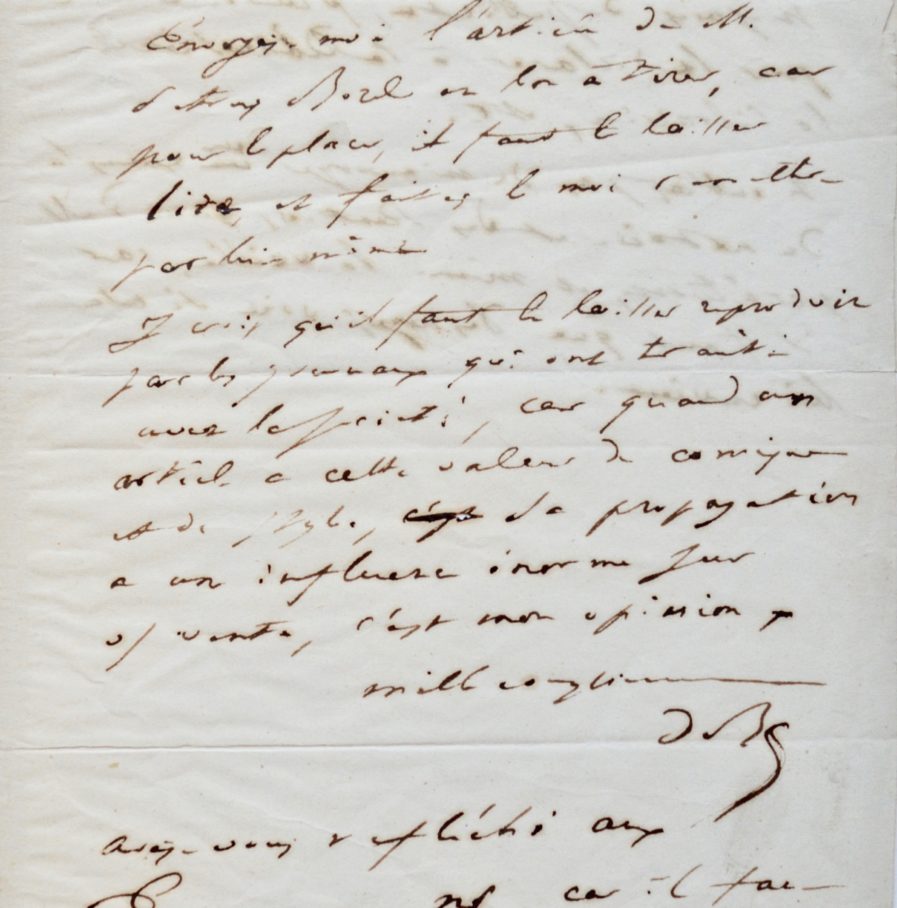 Envoyez-moi l'article de M.
Petrus Borel en bon à tirer, car
pour le placer, il faut le laisser
lire, et faites le moi remettre
par lui-même
Je crois qu'il faut le laisser reproduire
par les journaux qui ont traité
avec la société, car quand un
article a cette valeur de comique
et de style, sa propagation
a une influence énorme sur
vente, c'est mon opinion
mille compliments
de Bc
avez-vous réfléchi aux
car il fau-